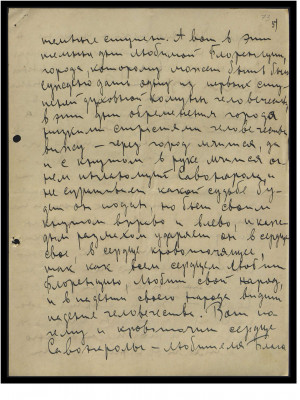 темные ступени. А вот в эти
темные дни любимой Флоренции,
города, которому может быть было
суждено дать одну из первых сту-
пеней духовной культуры человечества,
в эти дни овременения города
низкими страстями человечество
вижу — через город мчится, да
и с кнутом в руке мчится ог-
нем Савонарола, и
не сумит какой судьбе бу-
дет он подан, но бьет своим
кнутом вправо и влево, и каж-
дым размахом ударяет он в сердце
свое, в сердце кровоточащее,
так как всем сердцем любит
Флоренцию, любит свой народ,
и в падении своего народа видит
падение человечества. Вот по-
чему и кровоточит сердце
Савонаролы — любителя Блага